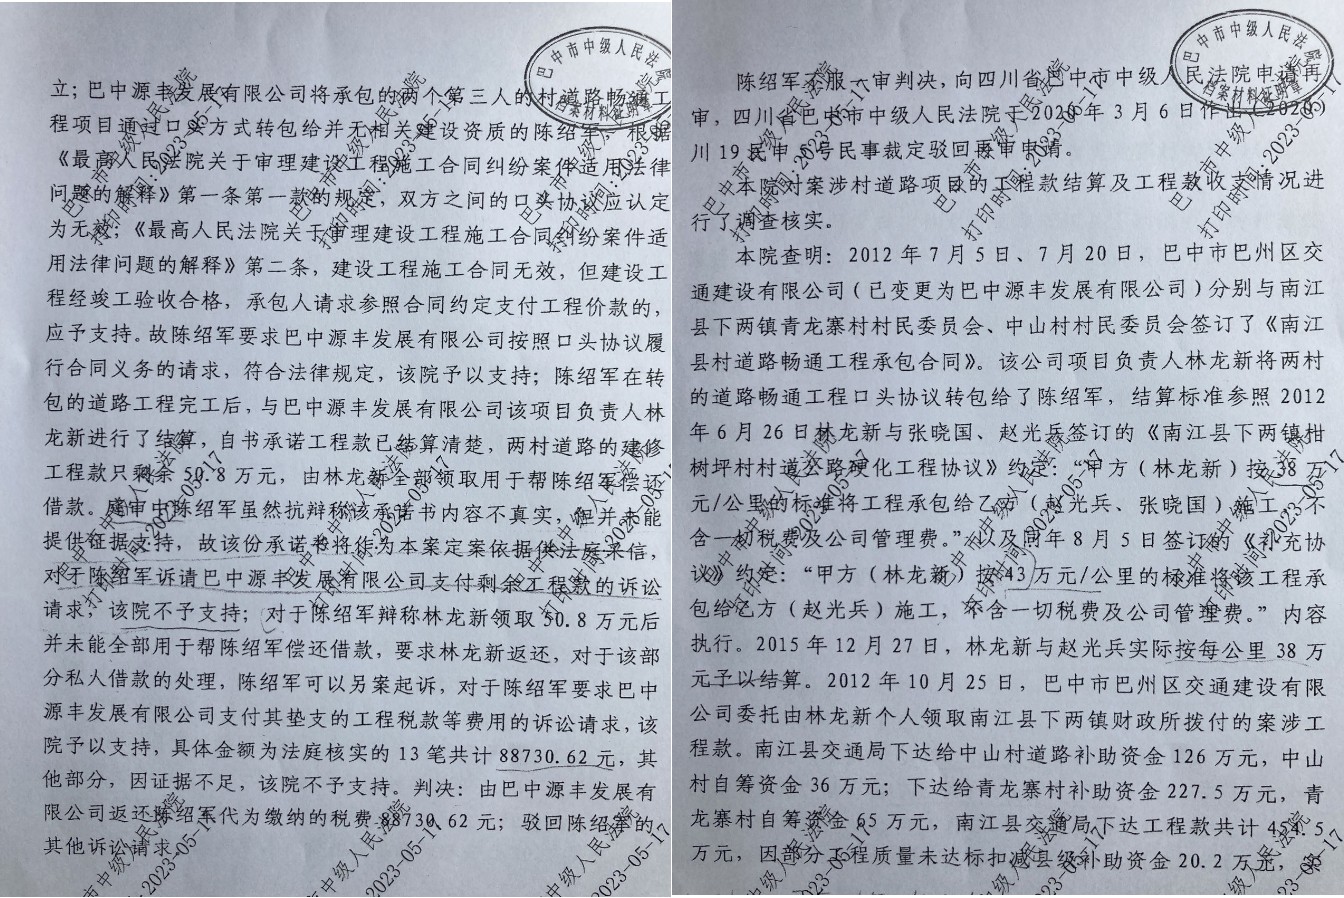 巴中市中级人民法院
档案材料证明章
立；巴中源丰发展有限公司将承包的两个第三人的村道路畅通工
程项目通过口头方式转包给并无相关建设资质的陈绍军，根据
《最高人民法院关于审理建设工程施工合同纠纷案件适用法律
问题的解释》第一条第一款的规定，双方之间的口头协议应认定
为无效；《最高人民法院关于审理建设工程施工合同纠纷案件适
用法律问题的解释》第二条，建设工程施工合同无效，但建设工
程经竣工验收合格，承包人请求参照合同约定支付工程价款的，
应予支持。故陈绍军要求巴中源丰发展有限公司按照口头协议履
行合同义务的请求，符合法律规定，该院予以支持；陈绍军在转
包的道路工程完工后，与巴中源丰发展有限公司该项目负责人林
龙新进行了结算，自书承诺工程款已结算清楚，两村道路的建修
工程款只剩余 50.8 万元，由林龙新全部领取用于帮陈绍军偿还
借款。庭审中陈绍军虽然抗辩称该承诺书内容不真实，但并未能
提供证据支持，故该份承诺书将作为本案定案依据供法庭采信，
对于陈绍军诉请巴中源丰发展有限公司支付剩余工程款的诉讼
请求，该院不予支持；对于陈绍军辩称林龙新领取 50.8 万元后
并未能全部用于帮陈绍军偿还借款，要求林龙新返还，对于该部
分私人借款的处理，陈绍军可以另案起诉，对于陈绍军要求巴中
源丰发展有限公司支付其垫支的工程税款等费用的诉讼请求，该
院予以支持，具体金额为法庭核实的 13 笔共计 88730.62 元，其
他部分，因证据不足，该院不予支持。判决：由巴中源丰发展有
限公司返还陈绍军代为缴纳的税费 88730.62 元；驳回陈绍军的
其他诉讼请求。
巴中市中级人民法院
打印时间：2023-05-17
巴中市中级人民法院
档案材料证明章
陈绍军不服一审判决，向四川省巴中市中级人民法院申请再
审，四川省巴中市中级人民法院于 2020 年 3 月 6 日作出（2020）
川 19 民申 号民事裁定驳回再审申请。
本院对案涉村道路项目的工程款结算及工程款收支情况进
行了调查核实。
本院查明：2012 年 7 月 5 日、7 月 20 日，巴中市巴州区交
通建设有限公司（已变更为巴中源丰发展有限公司）分别与南江
县下两镇青龙寨村村民委员会、中山村村民委员会签订了《南江
县村道路畅通工程承包合同》。该公司项目负责人林龙新将两村
的道路畅通工程口头协议转包给了陈绍军，结算标准参照 2012
年 6 月 26 日林龙新与张晓国、赵光兵签订的《南江县下两镇柑
树坪村村道公路硬化工程协议》约定：“甲方（林龙新）按 38 万
元/公里的标准将工程承包给乙方（赵光兵、张晓国）施工，不
含一切税费及公司管理费。”以及同年 8 月 5 日签订的《补充协
议》约定：“甲方（林龙新）按 43 万元/公里的标准将该工程承
包给乙方（赵光兵）施工，不含一切税费及公司管理费。”内容
执行。2015 年 12 月 27 日，林龙新与赵光兵实际按每公里 38 万
元予以结算。2012 年 10 月 25 日，巴中市巴州区交通建设有限
公司委托由林龙新个人领取南江县下两镇财政所拨付的案涉工
程款。南江县交通局下达给中山村道路补助资金 126 万元，中山
村自筹资金 36 万元；下达给青龙寨村补助资金 227.5 万元，青
龙寨村自筹资金 65 万元，南江县交通局下达工程款共计 454.5
万元，因部分工程质量未达标扣减县级补助资金 20.2 万元，
巴中市中级人民法院
打印时间：2023-05-17